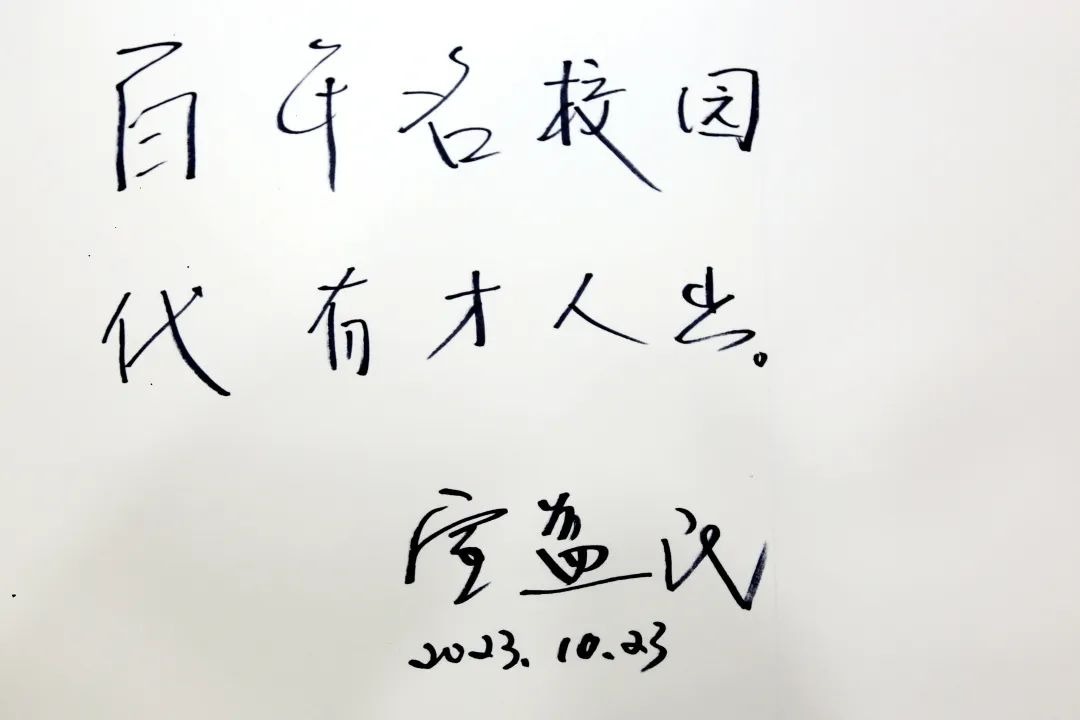 百年名校园
代有才人出。
宣益民
2023.10.23